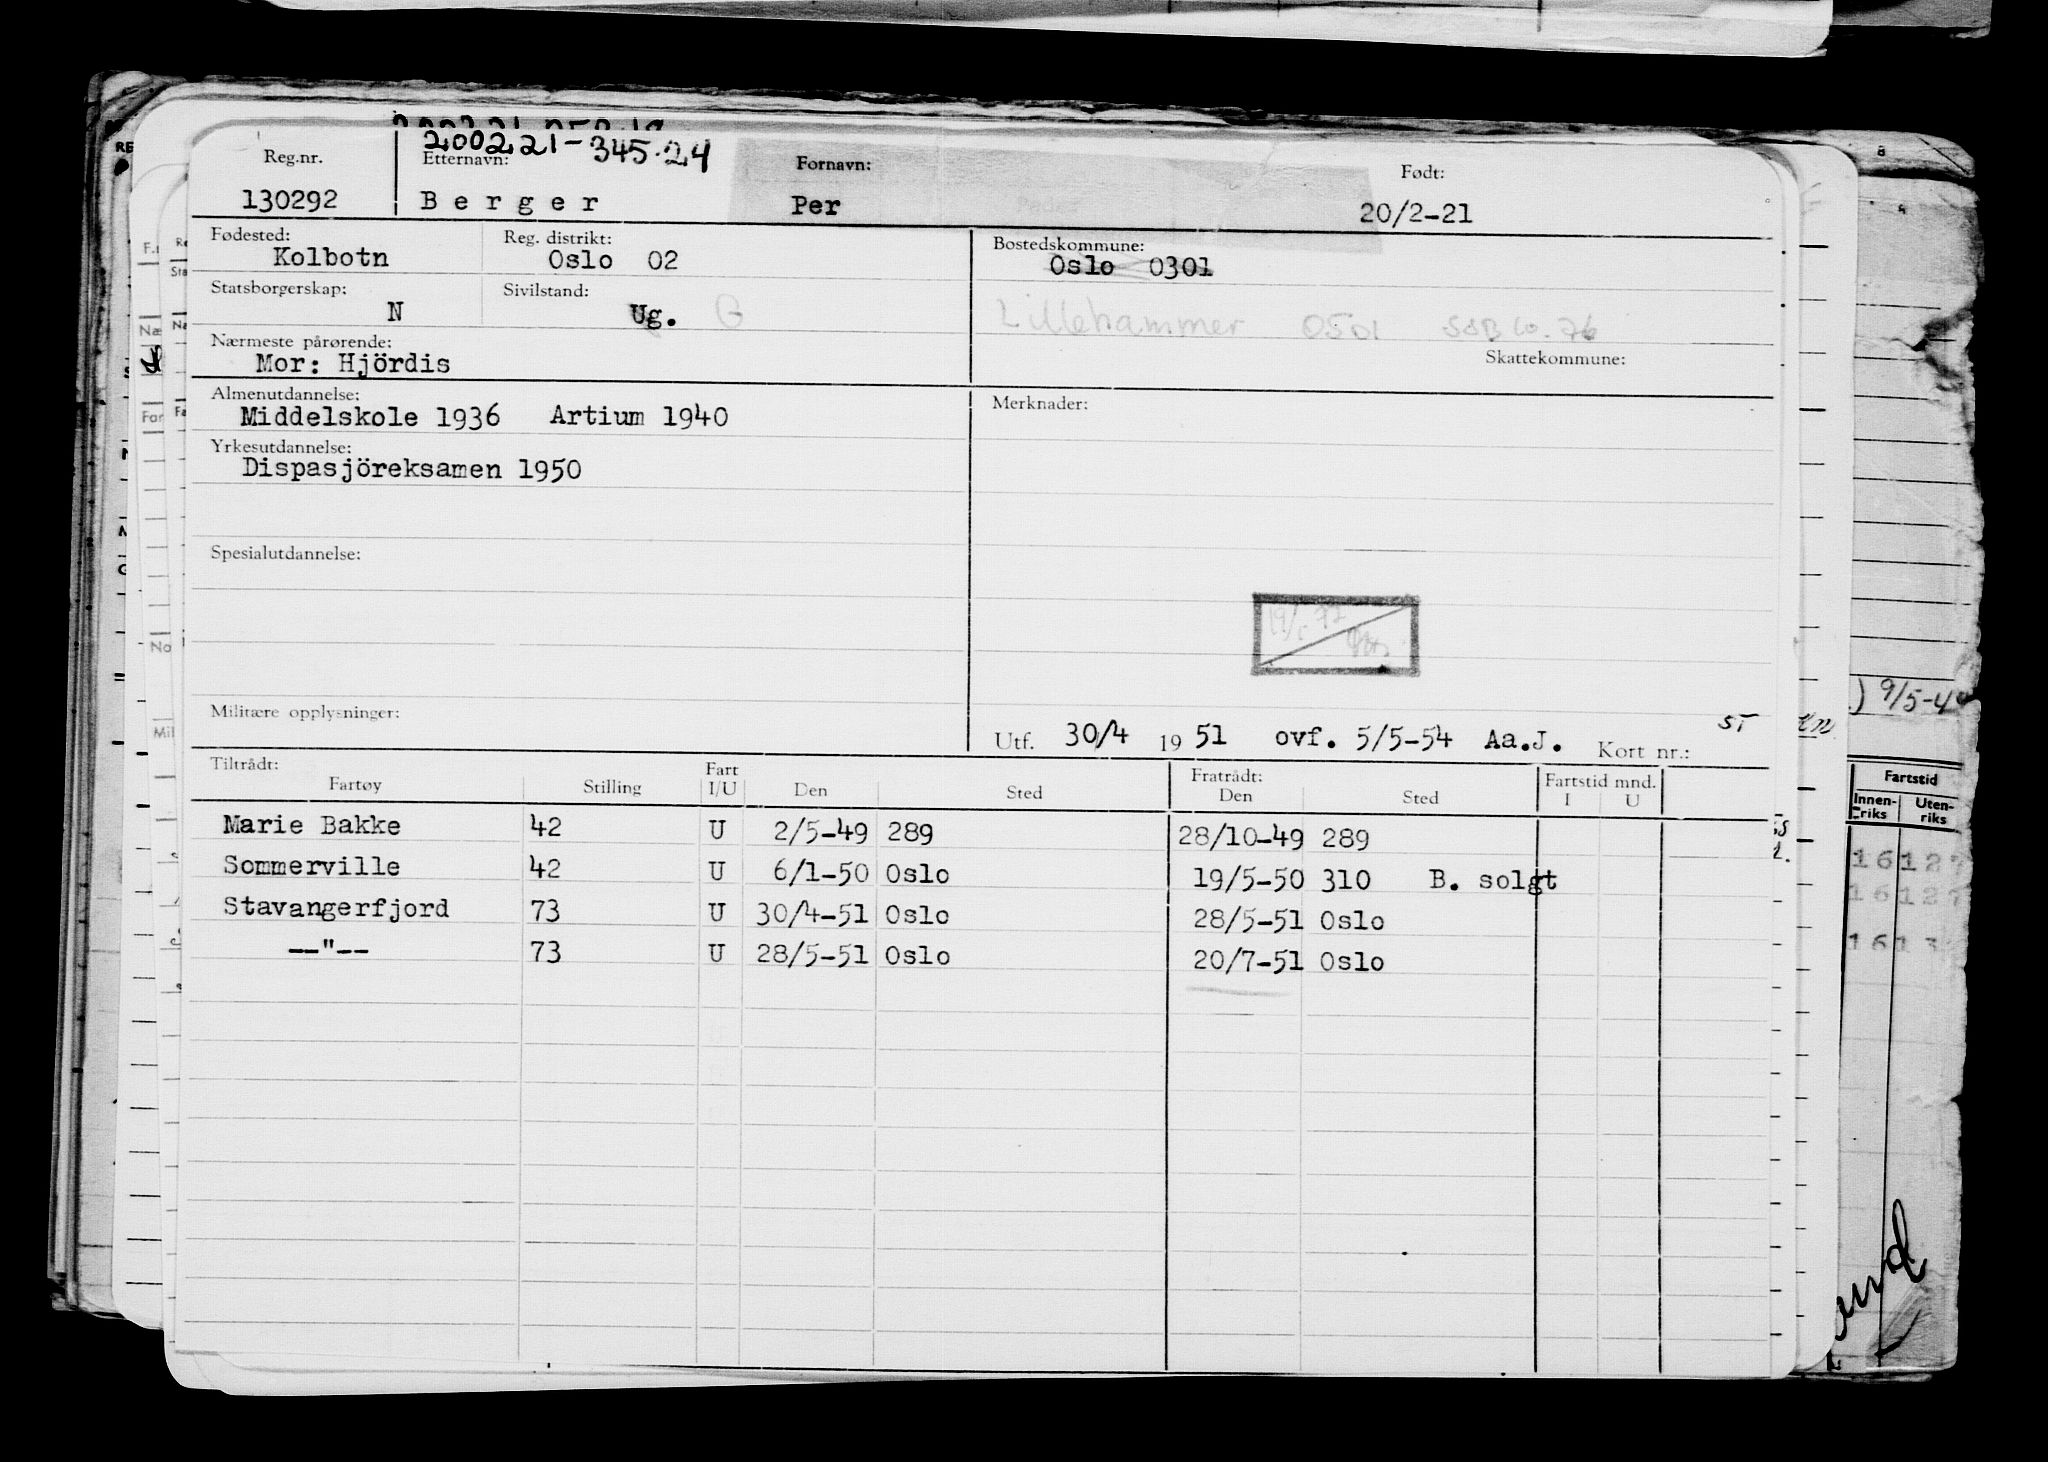 200221-345.24
Reg.nr. Etternavn: Fornavn: Født:
130292 Berger Per 20/2-21
Fødested: Reg. distrikt: Bostedskommune:
Kolbotn Oslo 02 Oslo 0301
Statsborgerskap: Sivilstand:
N Ug. G Lillehammer 0501
Nærmeste pårørende: Skattekommune:
Mor: Hjördis
Almenutdannelse: Merknader:
Middelskole 1936 Artium 1940
Yrkesutdannelse:
Dispasjöreksamen 1950
Spesialutdannelse:
Militære opplysninger:
Utf. 30/4 1951 ovf. 5/5-54 Aa.J. Kort nr.: ST
Tiltrådt: Fratrådt: Fartstid mnd.
Fartøy Stilling Fart I/U Den Sted Den Sted I U
Marie Bakke 42 U 2/5-49 289 28/10-49 289
Sommerville 42 U 6/1-50 Oslo 19/5-50 310 B. solgt
Stavangerfjord 73 U 30/4-51 Oslo 28/5-51 Oslo
--"-- 73 U 28/5-51 Oslo 20/7-51 Oslo
9/5-44
Fartstid
Innen-riks Uten-riks